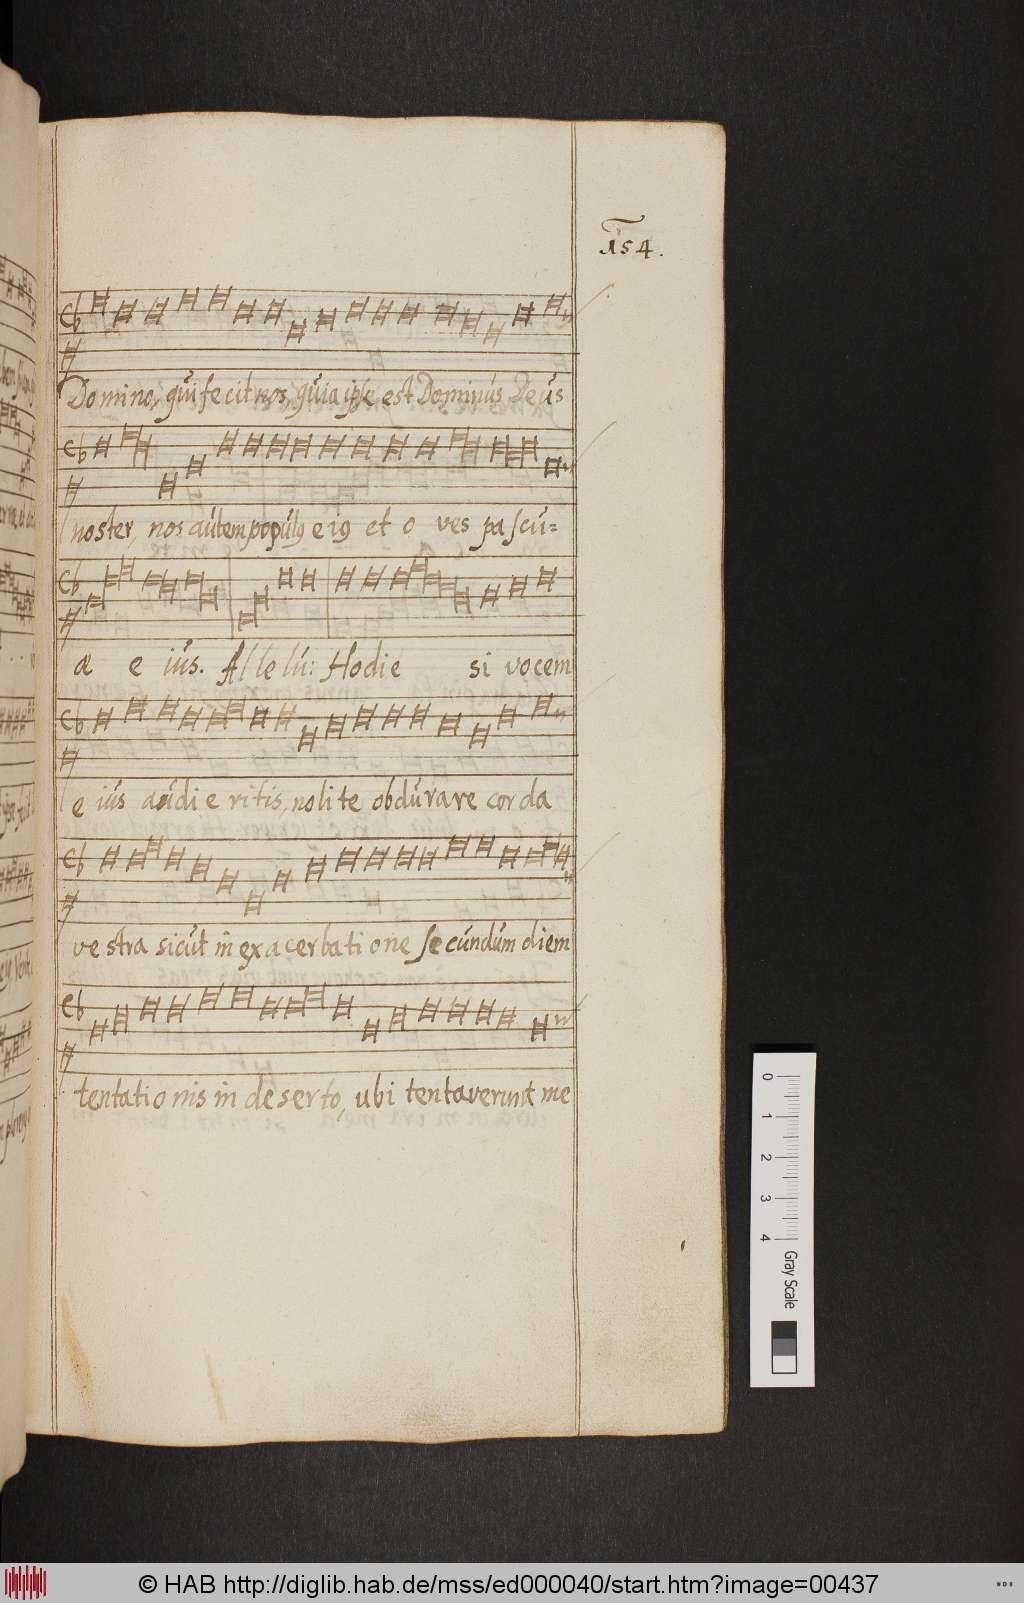 154.
Domino, qui fecit nos, quia ipse est Dominus Deus
noster, nos autem populus eius et oves pascu=
æ eius. Allelu: Hodie si vocem
eius audieritis, nolite obdurare corda
vestra sicut in exacerbatione secundum diem
tentationis in deserto, ubi tentaverunt me
0 1 2 3 4 Gray Scale
© HAB http://diglib.hab.de/mss/ed000040/start.htm?image=00437